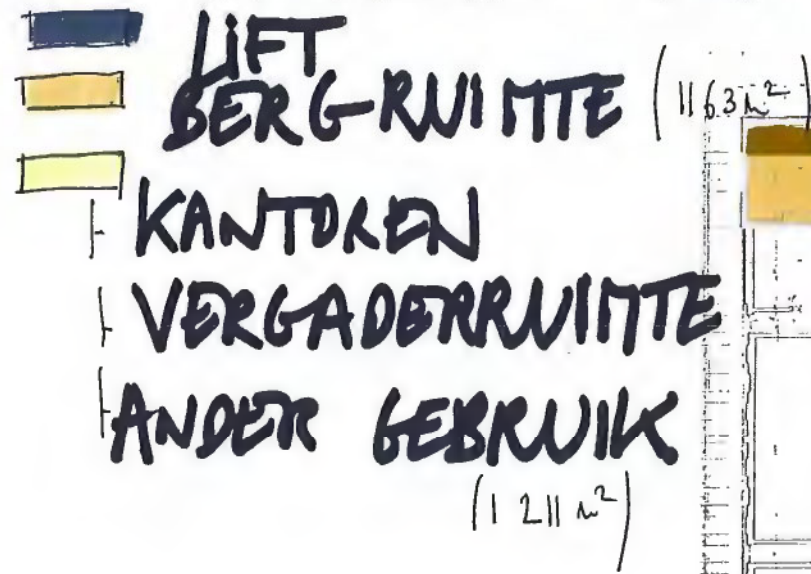 LIFT
BERG-RUIMTE (1163 m²)
KANTOREN
VERGADERRUIMTE
ANDER GEBRUIK
(1211 m²)